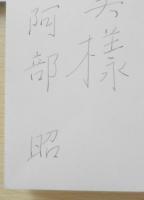 様
阿部 昭